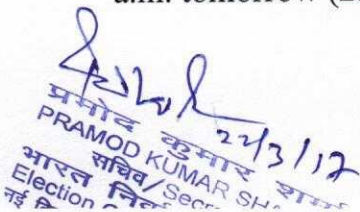 a.m. tomorrow (2
22/3/17
प्रमोद कुमार शर्मा
PRAMOD KUMAR SHA
सचिव/Secr
भारत निर्वा
Election
नई